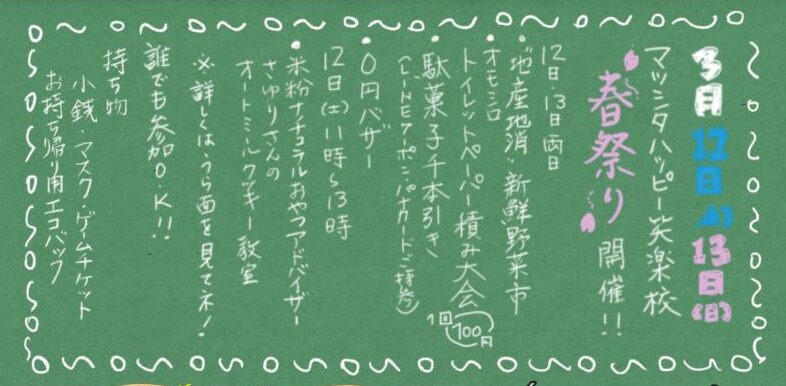 3月12日(土)13日(日)
マツシタハッピー笑楽校
春祭り開催!!
12日・13日両日
・"地産地消"新鮮野菜市
・オモシロ
トイレットペーパー積み大会
1回100円
・駄菓子千本引き
(LINEクーポン・パナカードご持参)
・0円バザー
12日(土)11時~13時
・米粉ナチュラルおやつアドバイザー
さゆりさんの
オートミルクッキー教室
※詳しくはうら面を見てネ!
誰でも参加O.K!!
持ち物
小銭・マスク・ゲームチケット
お持ち帰り用エコバック